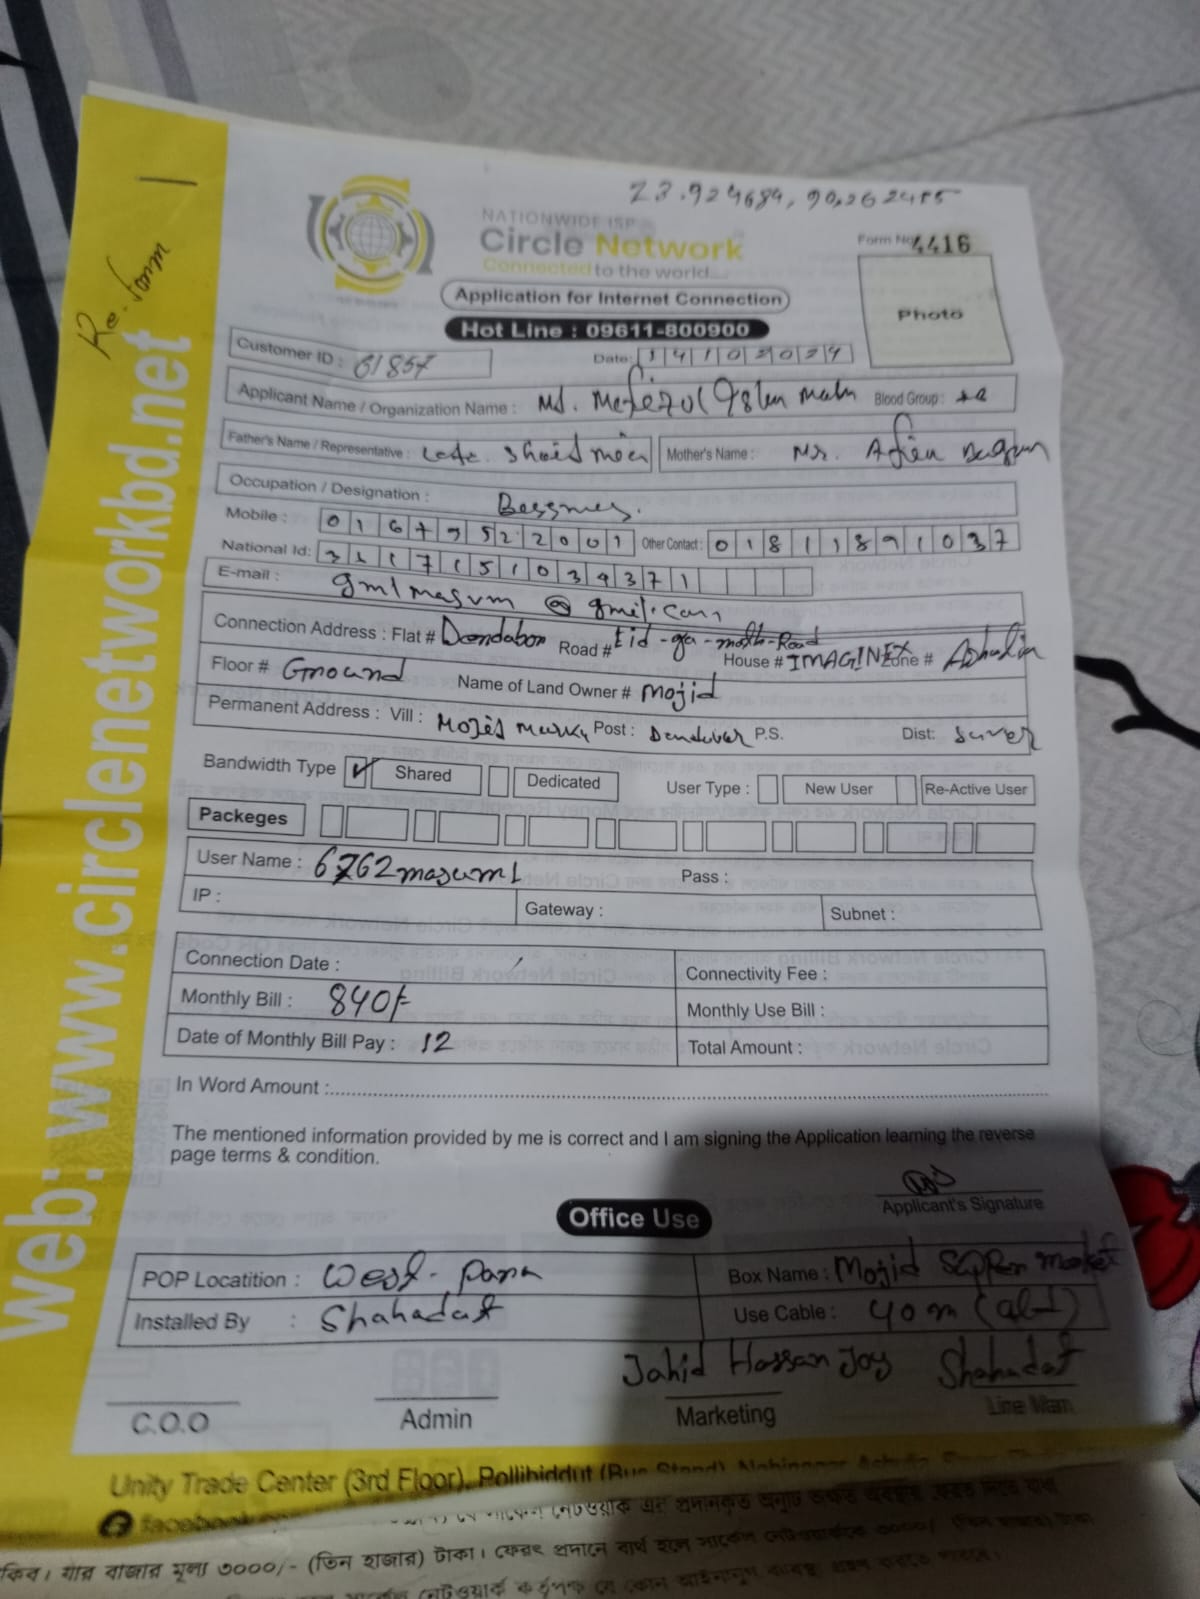 23.924684, 90.262485
Re-form
NATIONWIDE ISP
Circle Network
Connected to the world...
Form No. 4416
Application for Internet Connection
Photo
Hot Line : 09611-800900
Customer ID : 61857
Date: 14102024
Applicant Name / Organization Name : Md.
Blood Group :
Father's Name / Representative : Late. Shaid
Mother's Name : Begum
Occupation / Designation :
Mobile : 01679522001 Other Contact : 01811891037
National Id:
E-mail : gmlmasum @ gmil.com
Connection Address : Flat # Dendabor Road # Eid-ga-math-Road House # IMAGINEX Zone # Ashulia
Floor # Ground Name of Land Owner # Mojid
Permanent Address : Vill : Post : P.S. Dist: Saver
Bandwidth Type ✓ Shared Dedicated User Type : New User Re-Active User
Packeges
User Name : 6762masum1 Pass :
IP : Gateway : Subnet :
Connection Date : Connectivity Fee :
Monthly Bill : 840/- Monthly Use Bill :
Date of Monthly Bill Pay : 12 Total Amount :
In Word Amount :
The mentioned information provided by me is correct and I am signing the Application learning the reverse
page terms & condition.
Applicant's Signature
Office Use
POP Locatition : West-Para Box Name : Mojid Super Market
Installed By : Shahadat Use Cable : 40m
Jahid Hassan Joy Shahadat
C.O.O Admin Marketing Line Man
Unity Trade Center (3rd Floor), Pollibiddut (Bus Stand)
web: www.circlenetworkbd.net
যার বাজার মূল্য ৩০০০/- (তিন হাজার) টাকা। ফেরৎ প্রদানে ব্যর্থ হলে সার্কেল নেটওয়ার্ককে ৩০০০/- (তিন হাজার) টাকা